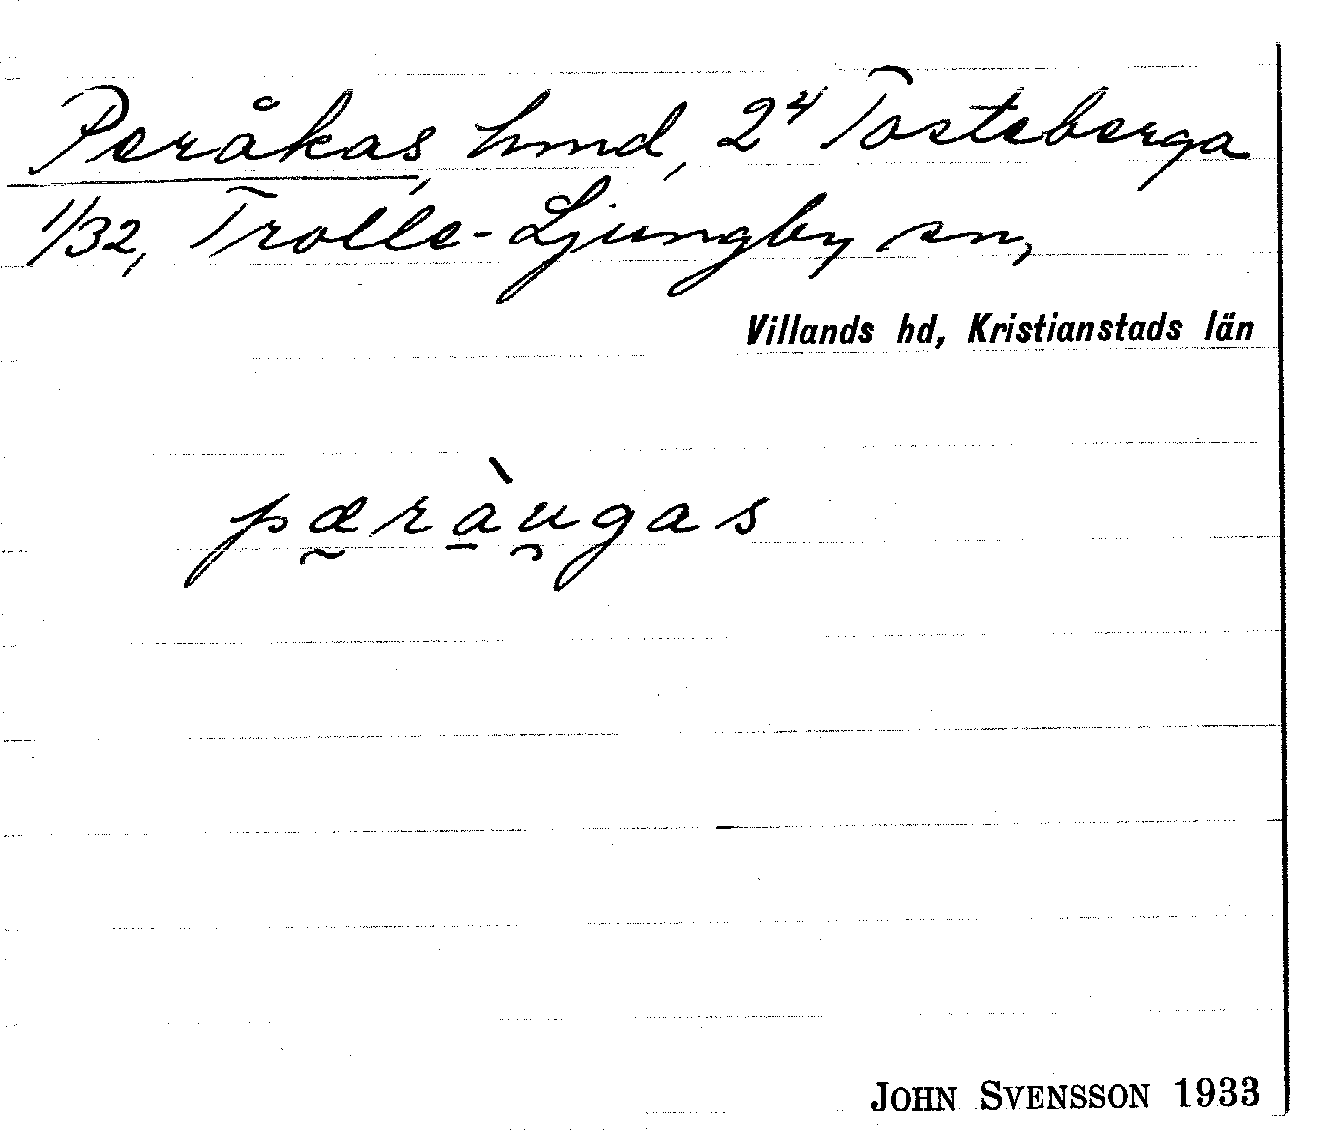 Peråkas, hmd, 2⁴ Tosteberga
1/32, Trolle-Ljungby sn,
Villands hd, Kristianstads län
pæ̰rà̱u̯gas
JOHN SVENSSON 1933